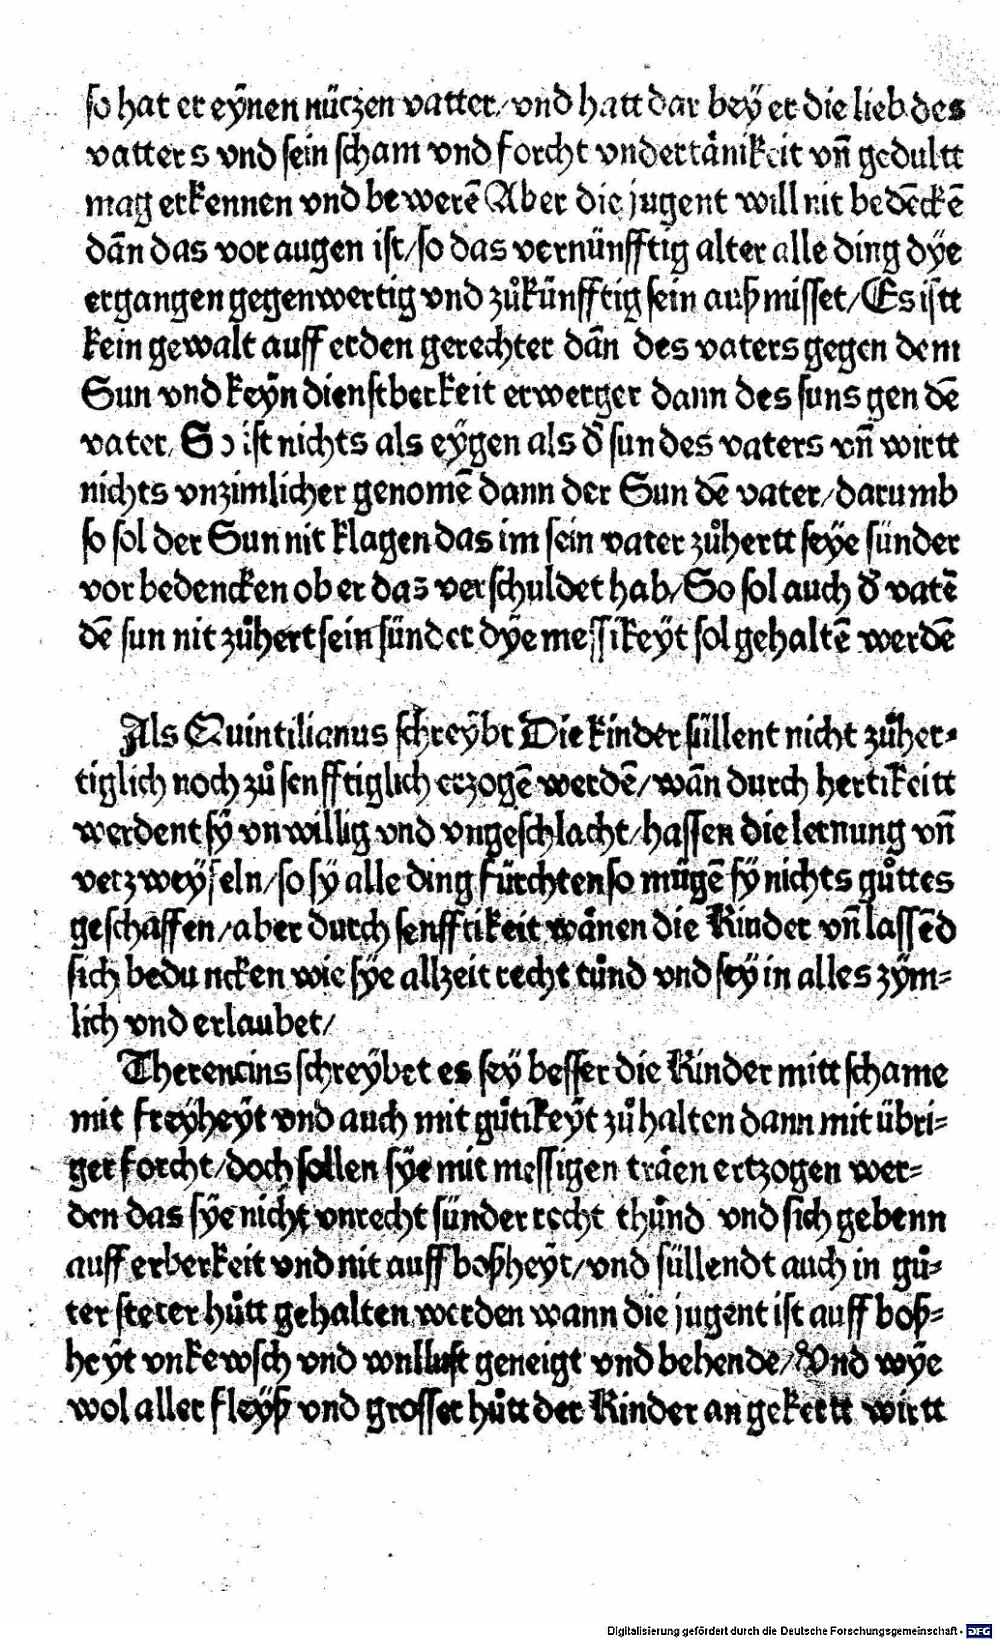 so hat er eÿnen nüczen vatter/ vnd hatt dar beÿ er die lieb des
vatters vnd sein scham vnd forcht vndertänikeit vn̄ gedultt
mag erkennen vnd bewerē Aber die jugent will nit bedēckē
dān das vor augen ist/ so das vernünfftig alter alle ding dÿe
ergangen gegenwertig vnd zůkünfftig sein auß misset/ Es istt
kein gewalt auff erden gerechter dān des vaters gegen dem
Sun vnd keÿn dienstberkeit erwerger dann des suns gen dē
vater/ So ist nichts als eÿgen als d̄ sun des vaters vn̄ wirtt
nichts vnzimlicher genomē dann der Sun dē vater/ darumb
so sol der Sun nit klagen das im sein vater zůhertt seÿe sünder
vor bedencken ob er das verschuldet hab/ So sol auch d̄ vatē
dē sun nit zůhert sein sünder dÿe messikeÿt sol gehaltē werdē
Als Quintilianus schreÿbt Die kinder süllent nicht zůher-
tiglich noch zů senfftiglich erzogē werdē/ wān durch hertikeitt
werdent sÿ vnwillig vnd vngeschlacht/ hassen die lernung vn̄
verzweÿfeln/ so sÿ alle ding fürchten so mügē sÿ nichts gůttes
geschaffen/ aber durch senfftikeit wänen die Kinder vn̄ lassēd
sich beduncken wie sÿe allzeit recht tůnd vnd seÿ in alles zÿm-
lich vnd erlaubet/
Therencius schreÿbet es seÿ besser die Kinder mitt schame
mit freÿheÿt vnd auch mit gütikeÿt zů halten dann mit übri-
ger forcht/ doch sollen sÿe mit messigen träen ertzogen wer-
den das sÿe nicht vnrecht sünder recht thůnd vnd sich gebenn
auff erberkeit vnd nit auff boßheÿt/ vnd süllendt auch in gů-
ter steter hůtt gehalten werden wann die jugent ist auff boß-
heÿt vnkewsch vnd wollust geneigt vnd behende/ Vnd wÿe
wol aller fleÿß vnd grosser hůtt der Kinder an gekertt wirtt
Digitalisierung gefördert durch die Deutsche Forschungsgemeinschaft - DFG